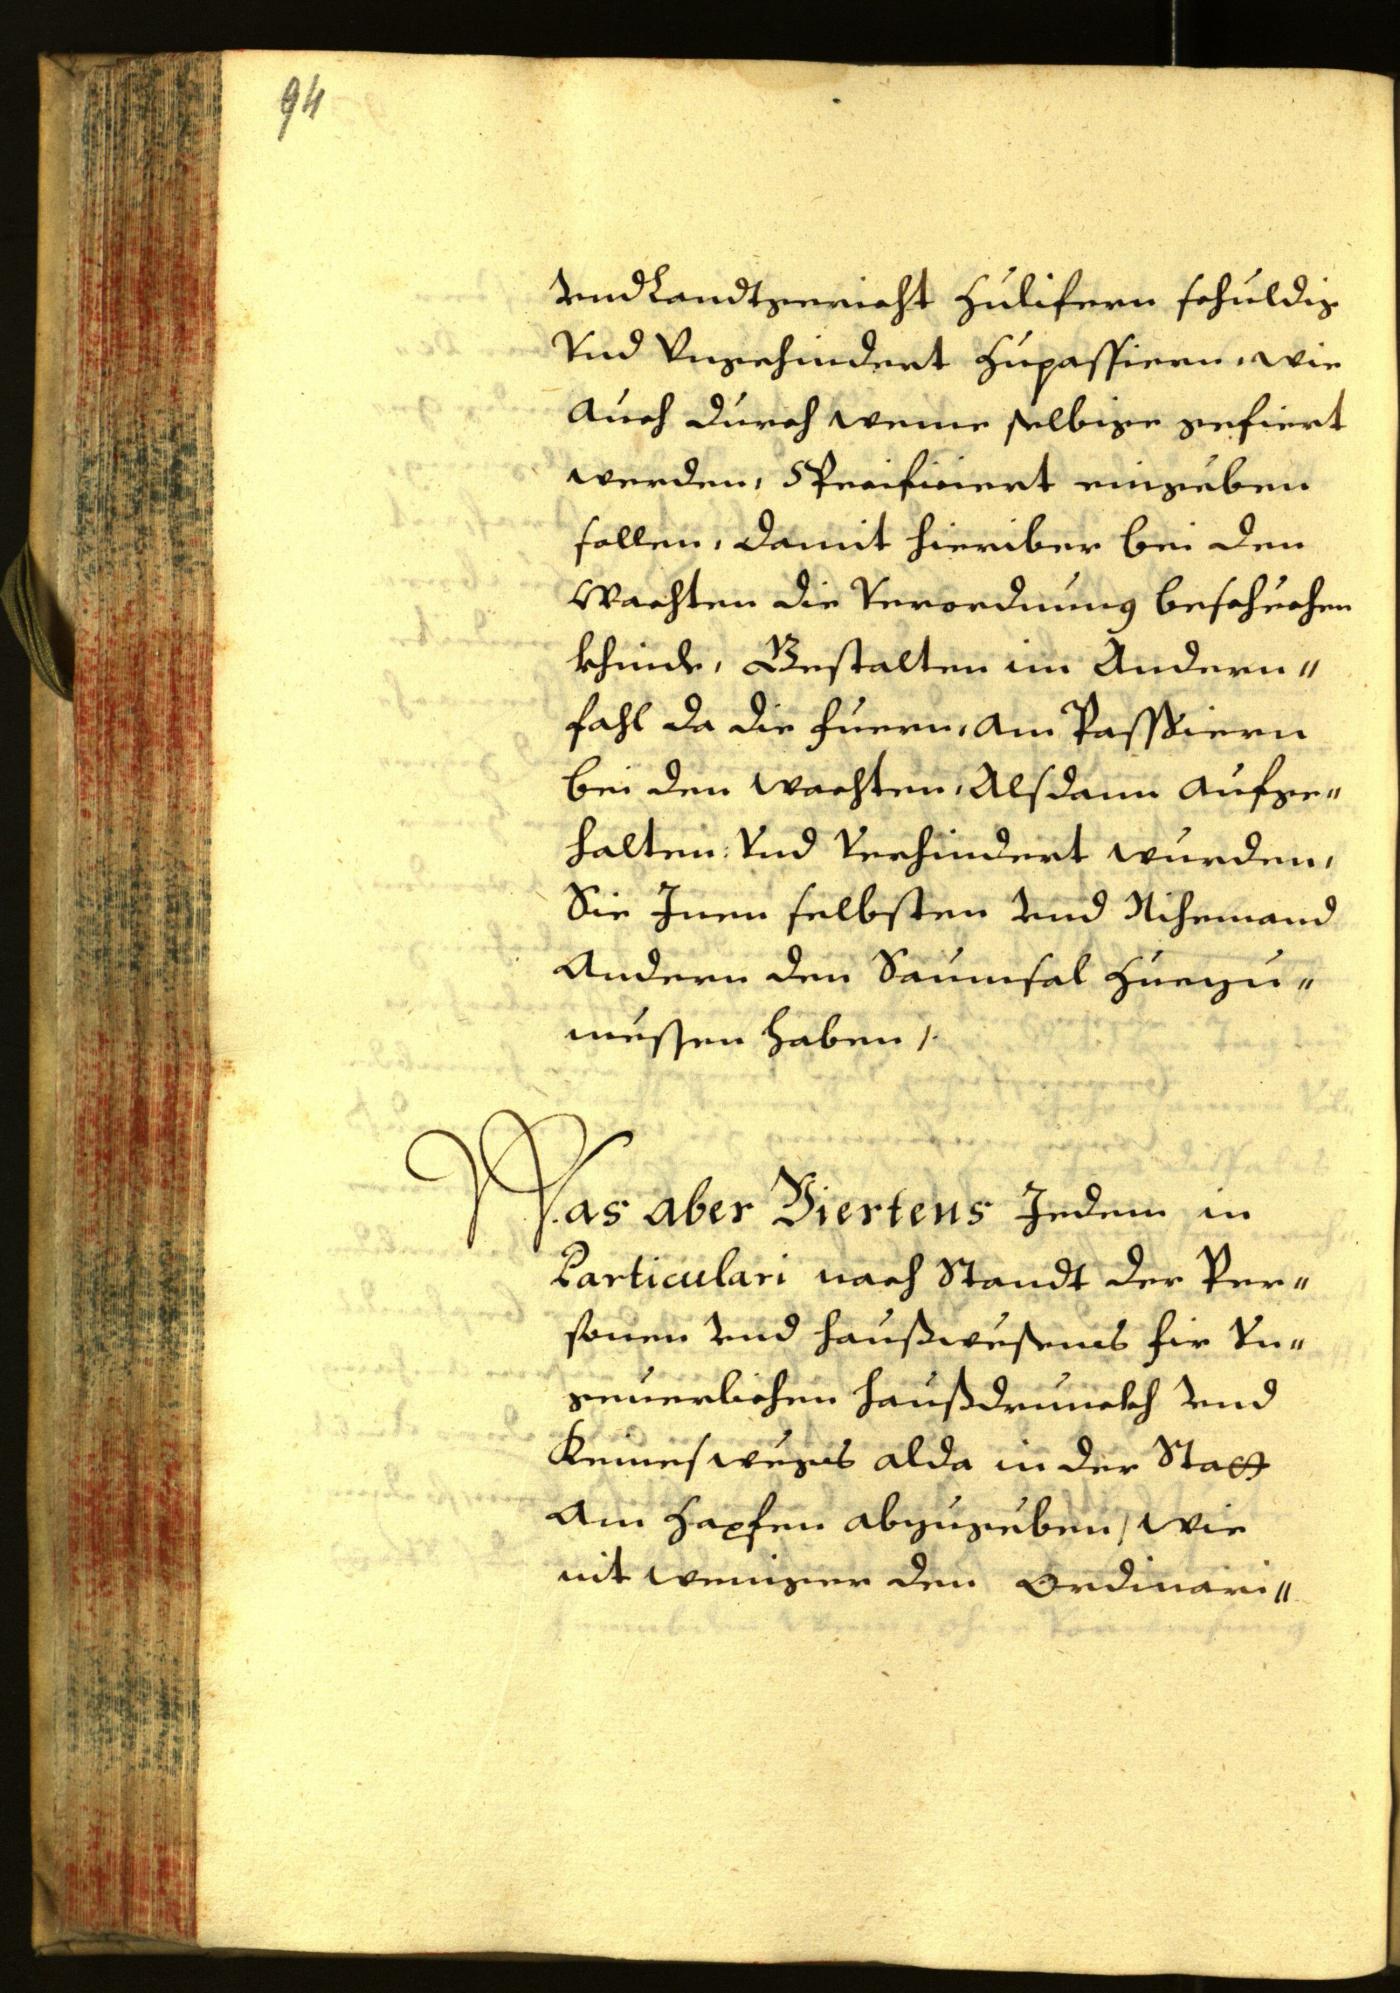 94
vnd Landtgericht zúlifern schuldig
Vnd Vngehindert zúpassiern, wie
aúch dúrch weme selbige gefiert
werden, SPecificiert eingeben
sollen, damit hieriber bei den
Wachten die Verordnúng beschechen
khinde, Gestalten im Andern„
fahl da die fúern, am Passsiern
bei den wachten, Alsdann aúfge„
halten, Vnd Verhindert wúrden,
Sie Jnen selbsten vnd Nihemand
Andern den Saúmsal Zúezú„
messen haben /.
Was aber Viertens Jedem in
Particulari nach Standt der Per„
sonen vnd haúßwesens fir Vn„
geuerlichen haúßdrunckh vnd
Keines weegs alda in der Statt
Am Zapfen abzúgeben, wie
nit weniger den Ordinari„